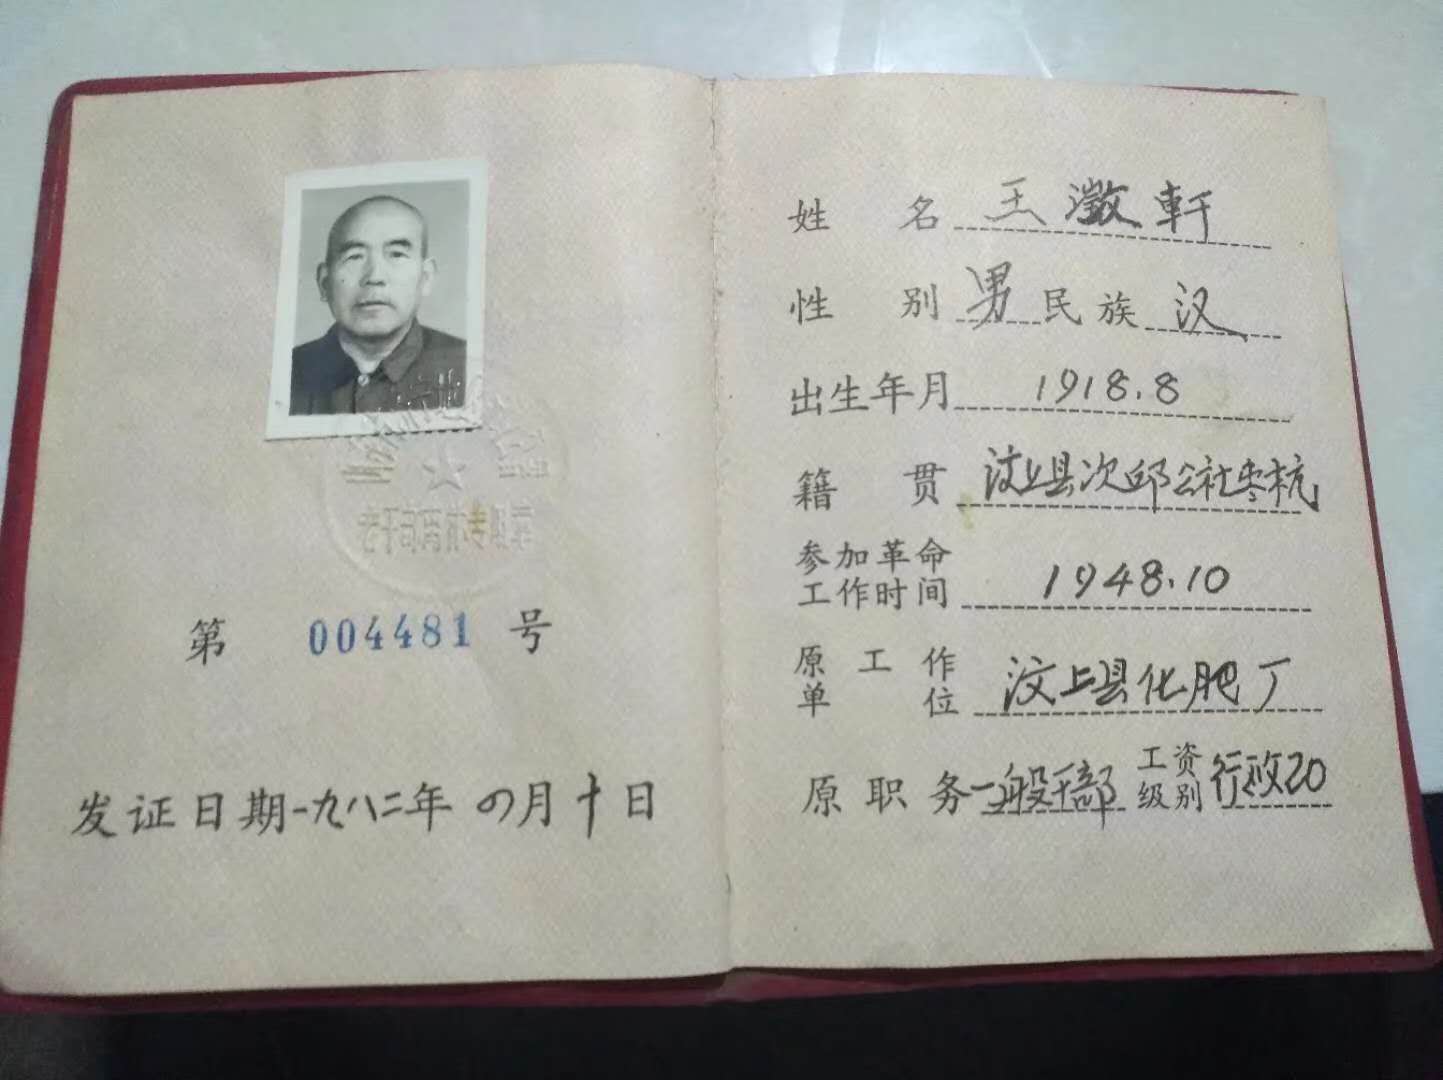 老干部离休专用章
第 004481 号
发证日期一九八二年 四月十日
姓 名 王澂軒
性 别 男 民族 汉
出生年月 1918.8
籍 贯 汶上县次邱公社枣杭
参加革命工作时间 1948.10
原工作单位 汶上县化肥厂
原职务 一般干部 工资级别 行政20